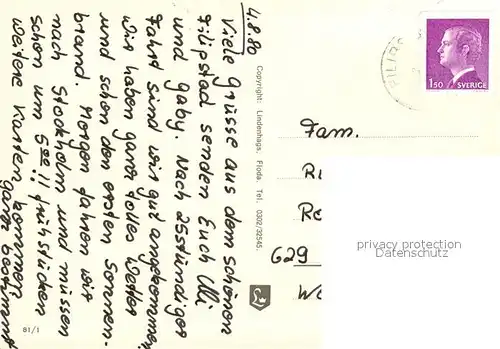 4.8.80
Viele Grüsse aus dem schönen
Filipstad senden Euch Ulli
und Gaby. Nach 25stündiger
Fahrt sind wir gut angekommen.
Wir haben ganz tolles Wetter
und schon den ersten Sonnen-
brand. Morgen fahren wir
nach Stockholm und müssen
schon um 5 00 !! frühstücken
Weitere Karten kommen
ganz bestimmt
81/1
Copyright: Lindenhags, Floda. Tel. 0302/32545.
1.50 SVERIGE
Fam.
R
R
629
W
privacy protection
Datenschutz